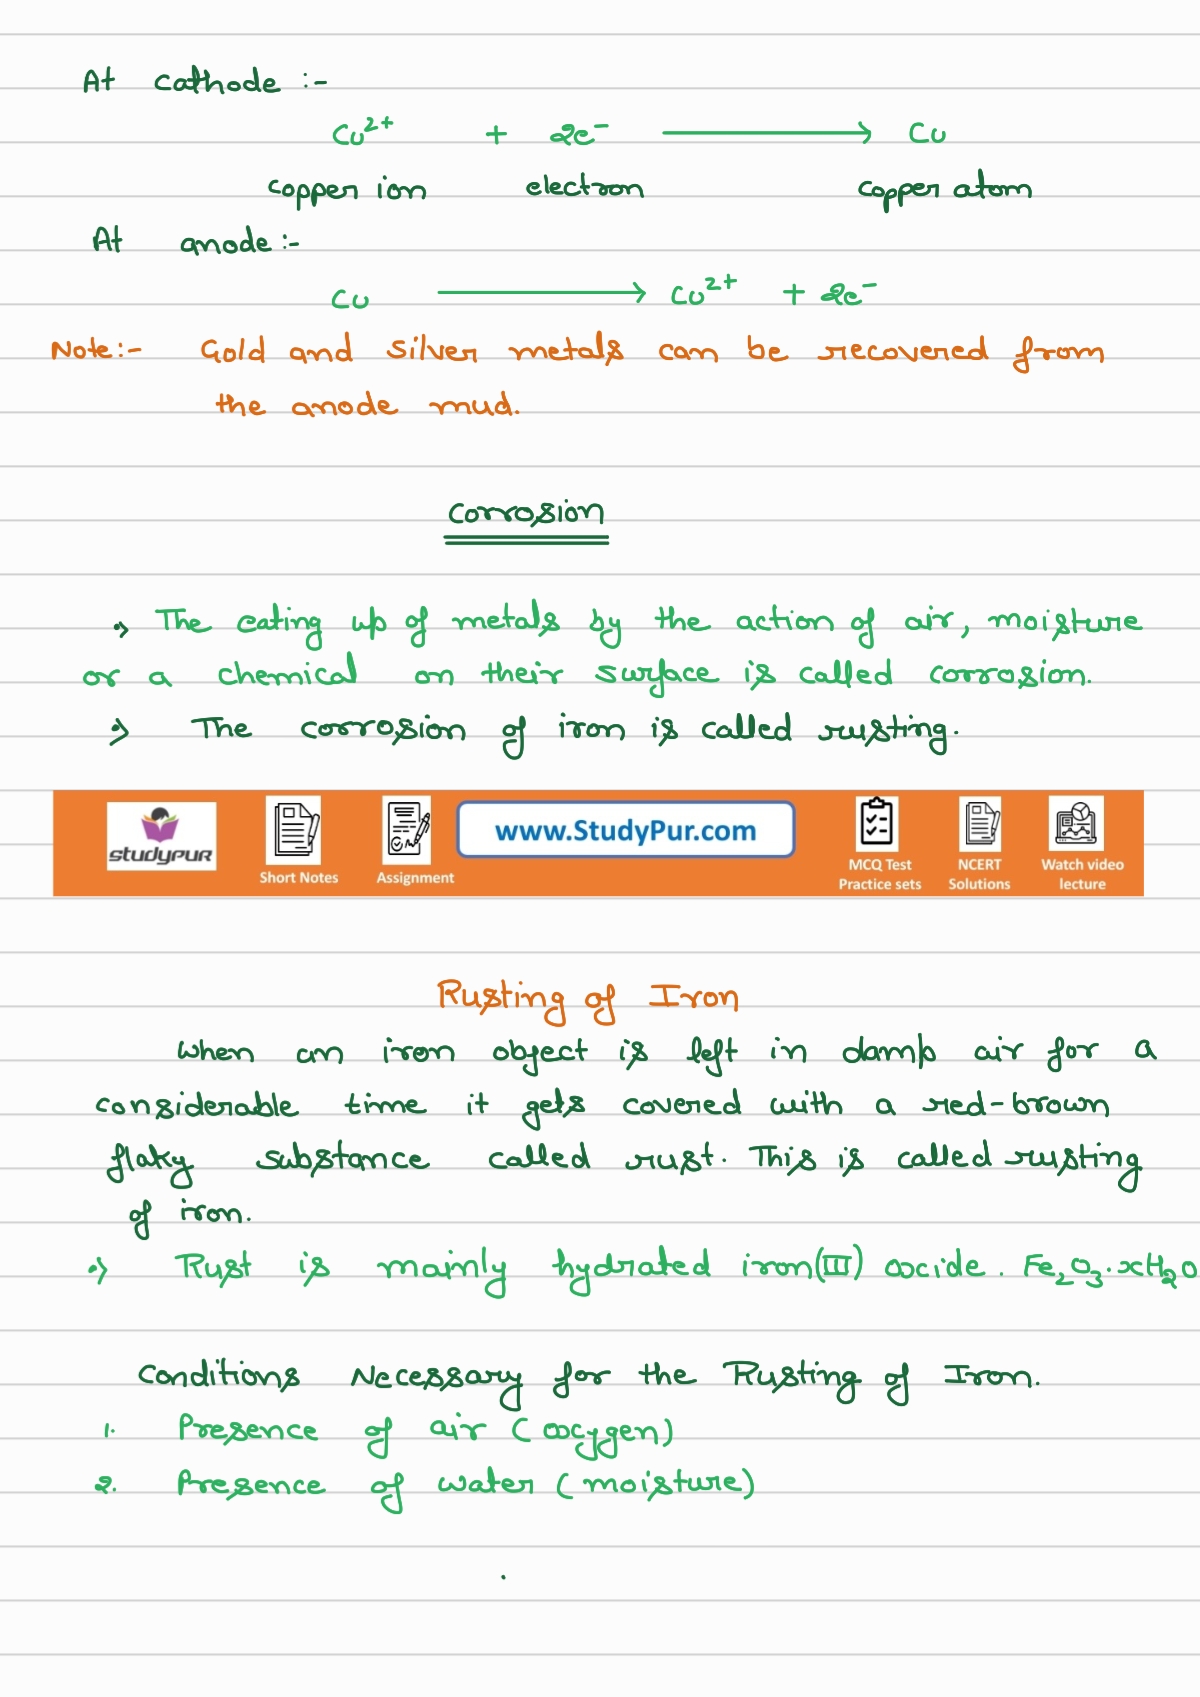 At cathode :-
Cu²⁺ + 2e⁻ ⟶ Cu
copper ion electron copper atom
At anode :-
Cu ⟶ Cu²⁺ + 2e⁻
Note:- Gold and silver metals can be recovered from
the anode mud.
Corrosion
⇒ The eating up of metals by the action of air, moisture
or a chemical on their surface is called corrosion.
⇒ The corrosion of iron is called rusting.
studypur
Short Notes
Assignment
www.StudyPur.com
MCQ Test
Practice sets
NCERT
Solutions
Watch video
lecture
Rusting of Iron
When an iron object is left in damp air for a
considerable time it gets covered with a red-brown
flaky substance called rust. This is called rusting
of iron.
⇒ Rust is mainly hydrated iron(III) oxide. Fe₂O₃.xH₂O
Conditions Necessary for the Rusting of Iron.
1. Presence of air (oxygen)
2. Presence of water (moisture)